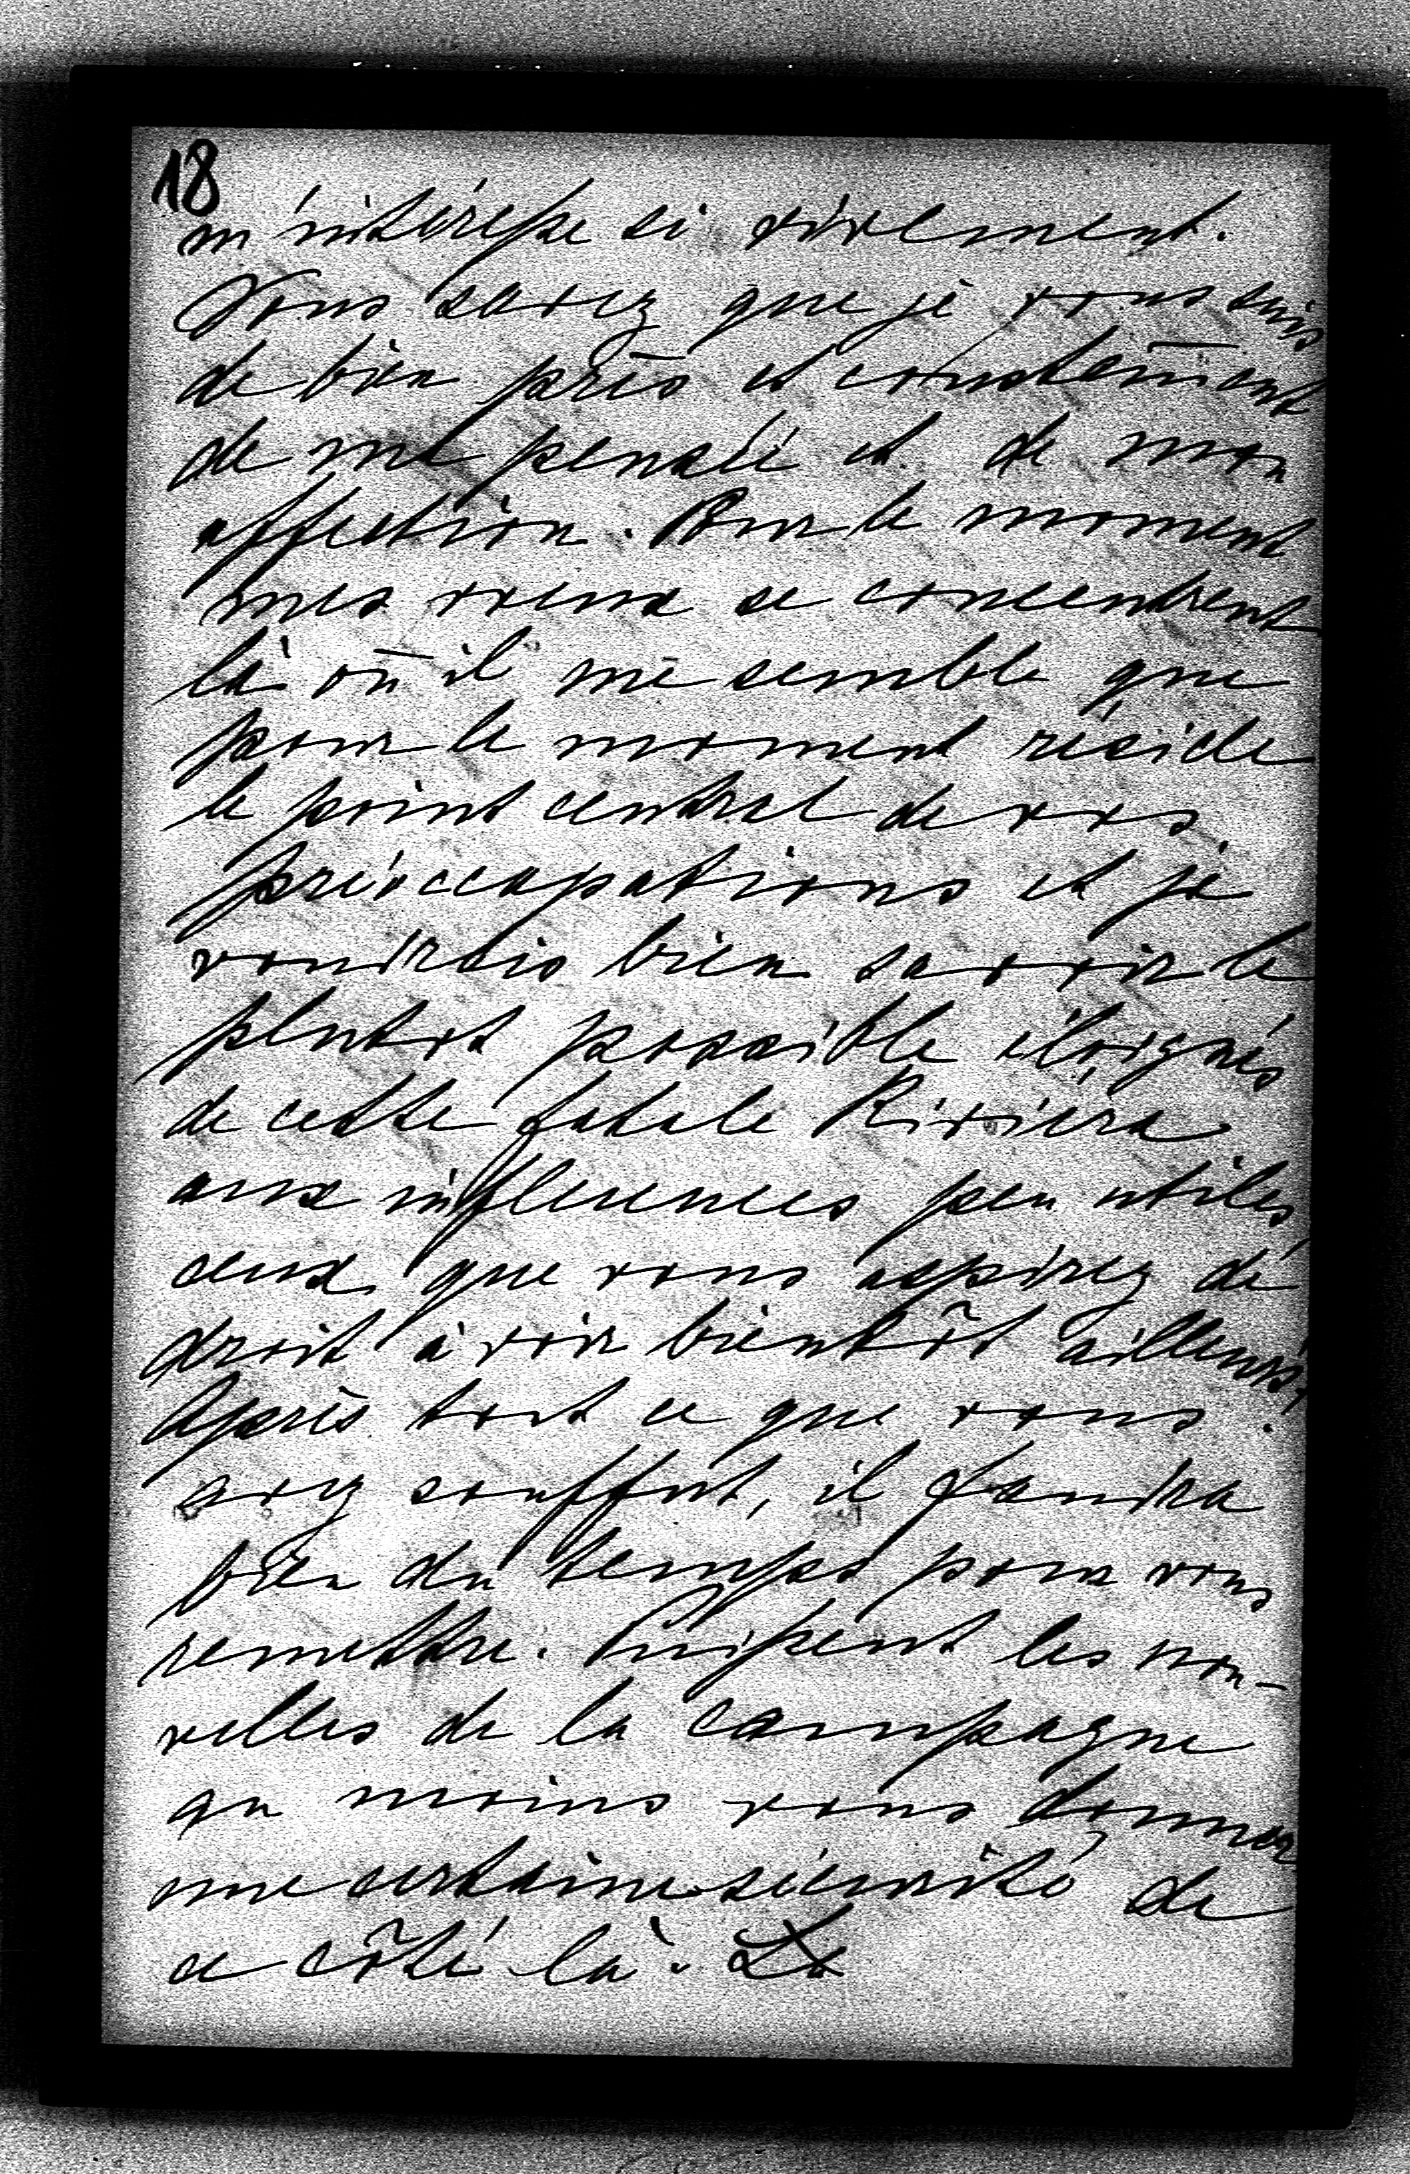 18
m'intéresse si vivement.
Vous savez que je vous suis
de bien près et constamment
de ma pensée et de mon
affection. Pour le moment
mes voeux se concentrent
là où il me semble que
pour le moment réside
le point central de vos
préoccupations et je
voudrais bien savoir le
plutot possible éloignés
de cette fatale Riviera
aux influences peu utiles
ceux que vous aspirez de
droit à voir bientôt ailleurs!
Après tout ce que vous
avez souffert, il faudra
bien du temps pour vous
remettre. Puissent les nou-
velles de la campagne
au moins vous donner
une certaine sécurité de
ce côté là. La